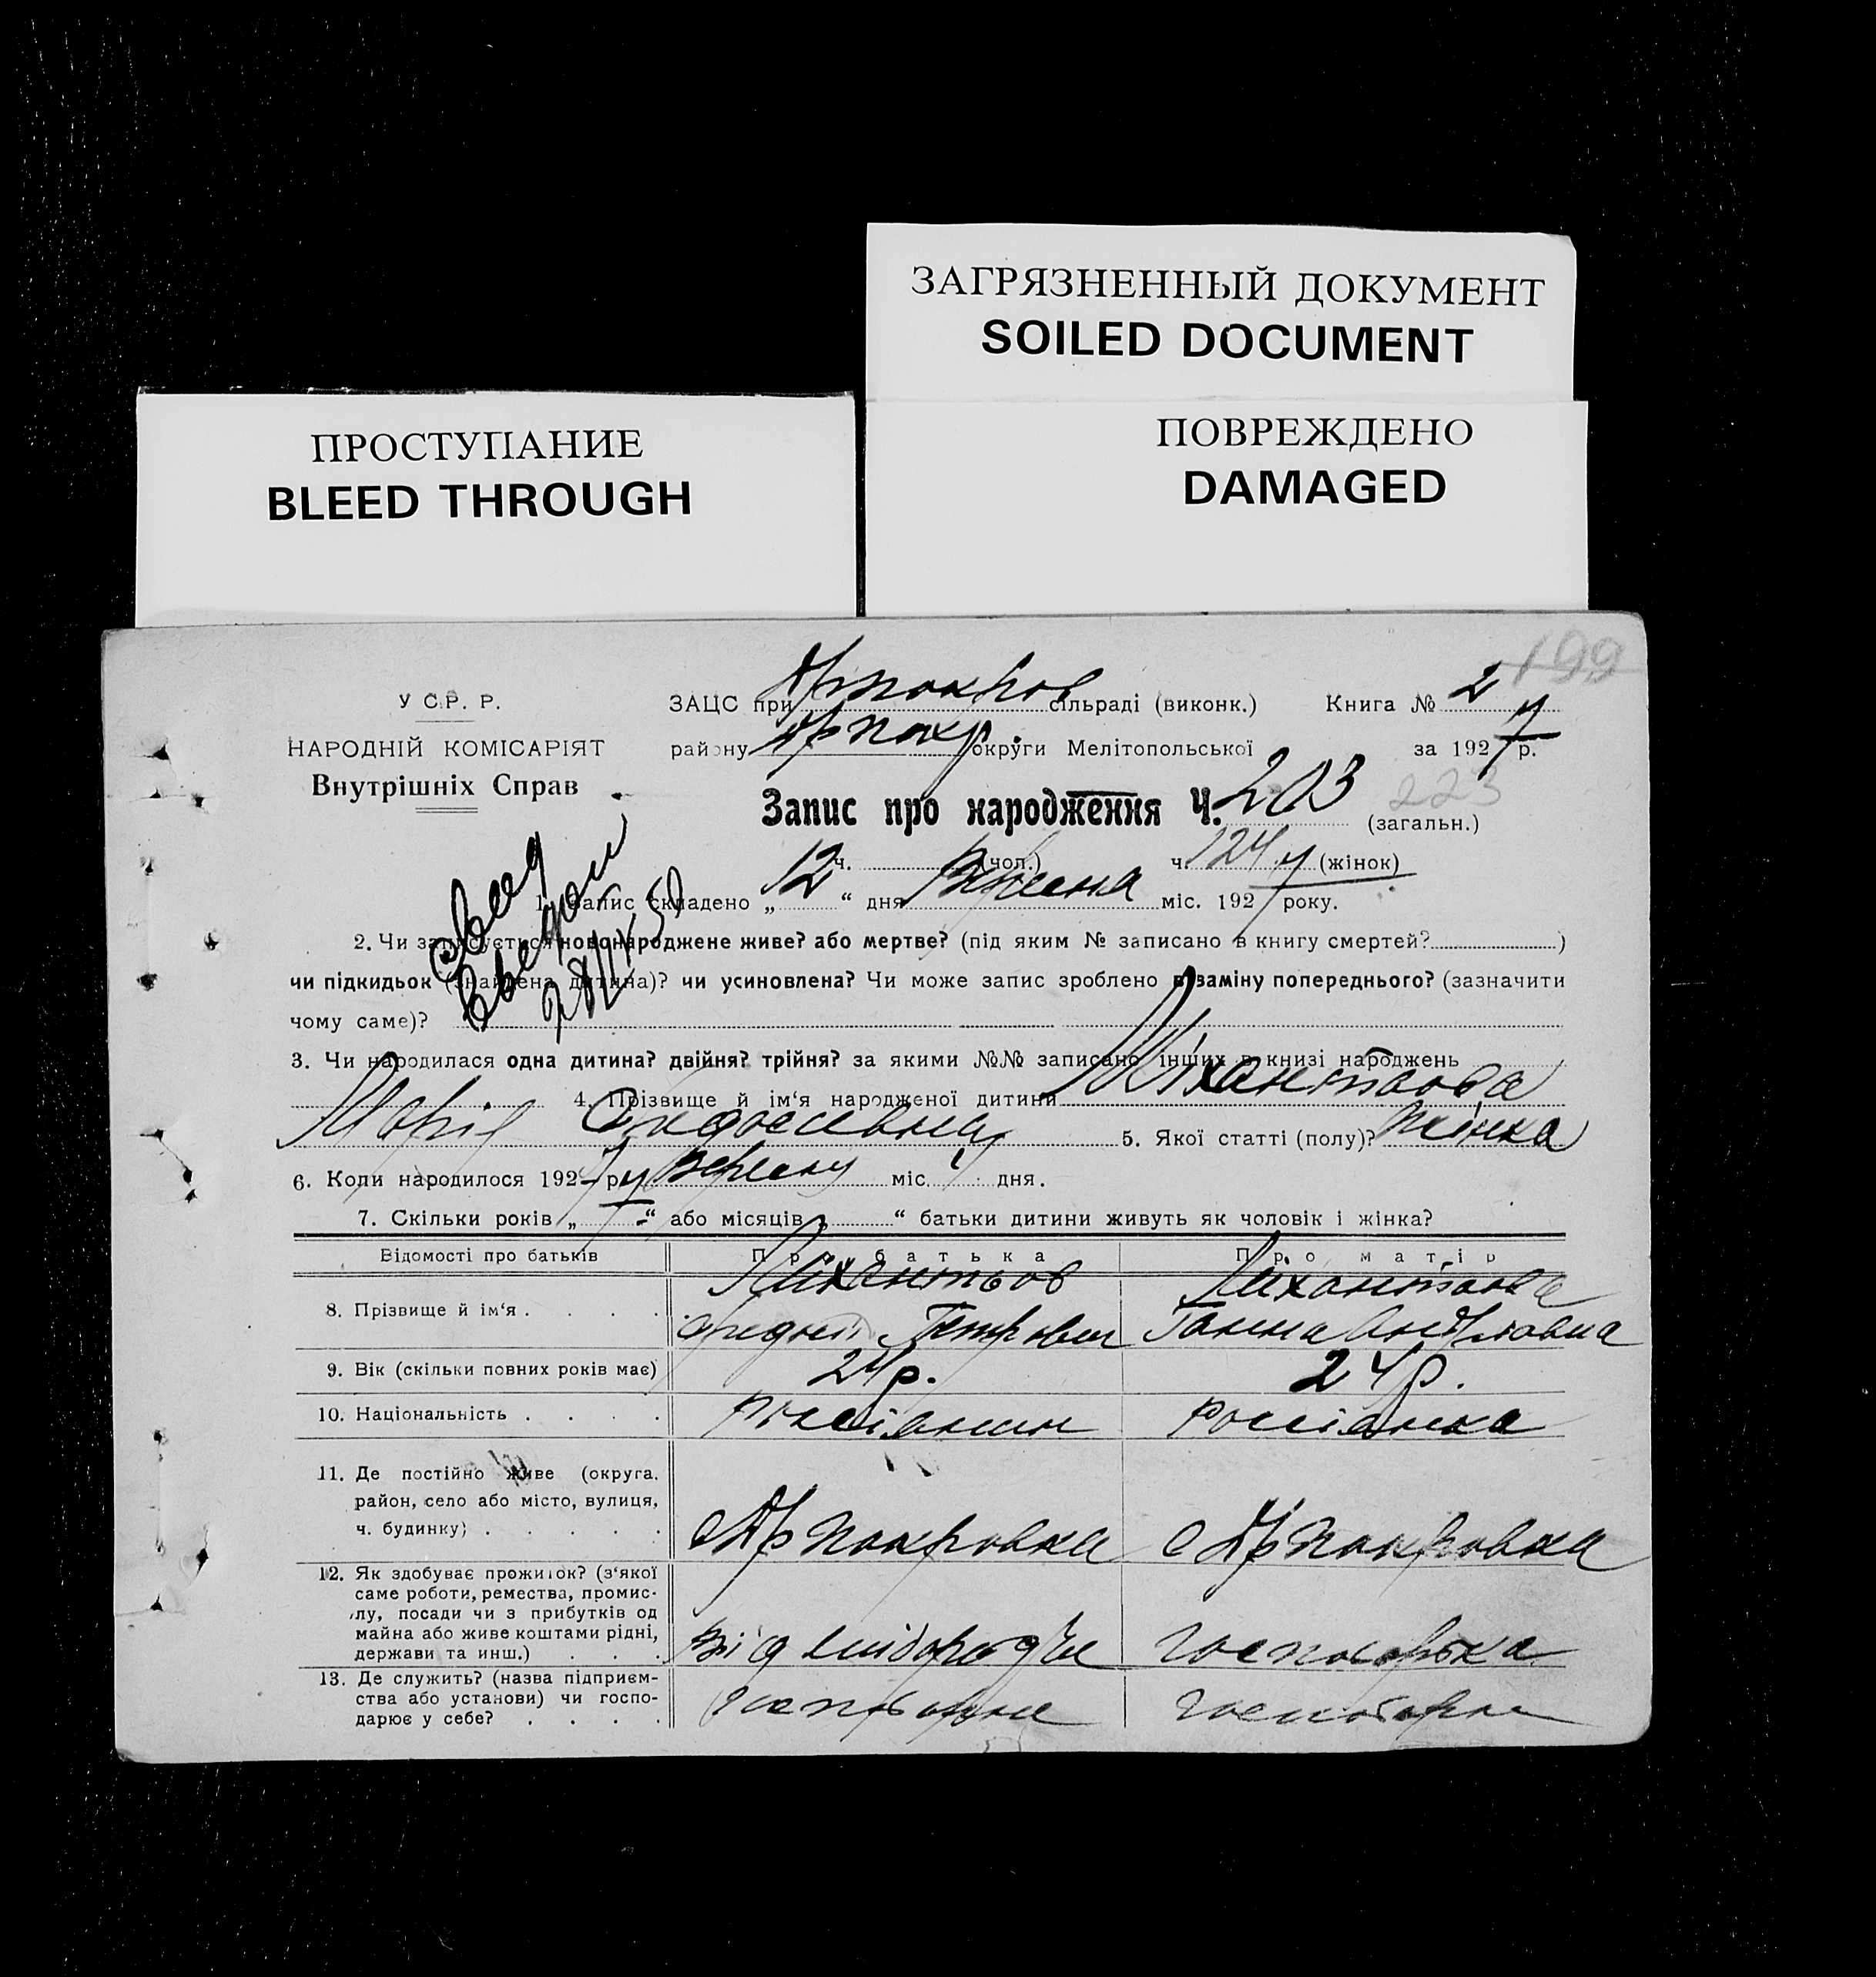 ЗАГРЯЗНЕННЫЙ ДОКУМЕНТ
SOILED DOCUMENT
ПРОСТУПАНИЕ
BLEED THROUGH
ПОВРЕЖДЕНО
DAMAGED
199
У С.Р. Р.
НАРОДНІЙ КОМІСАРІЯТ
Внутрішніх Справ
ЗАЦС при сільраді (виконк.) Книга № 2
району округи Мелітопольської за 1927 р.
Запис про народження Ч. 203 223
(загальн.)
ч. (чол.) ч. 124 (жінок)
1. Запис складено „ 12 “ дня міс. 1927 року.
2. Чи записується новонароджене живе? або мертве? (під яким № записано в книгу смертей? )
чи підкидьок (знайдена дитина)? чи усиновлена? Чи може запис зроблено в заміну попереднього? (зазначити
чому саме)?
3. Чи народилася одна дитина? двійня? трійня? за якими №№ записано інших в книзі народжень
4. Прізвище й ім'я народженої дитини
Марія 5. Якої статті (полу)? жінка
6. Коли народилося 1927 р. вересня міс. дня.
7. Скільки років „ “ або місяців „ “ батьки дитини живуть як чоловік і жінка?
Відомості про батьків Про батька Про матір
8. Прізвище й ім'я . . . .
Петрович Ганна
9. Вік (скільки повних років має) 24 р. 24 р.
10. Національність . . . . россіянин россіянка
11. Де постійно живе (округа,
район, село або місто, вулиця,
ч. будинку) . . . . . с Ар Покровка с Ар Покровка
12. Як здобуває прожиток? (з'якої
саме роботи, ремества, промис-
лу, посади чи з прибутків од
майна або живе коштами рідні,
держави та инш.) . . . .
13. Де служить? (назва підприєм-
ства або установи) чи госпо-
дарює у себе? . . . .